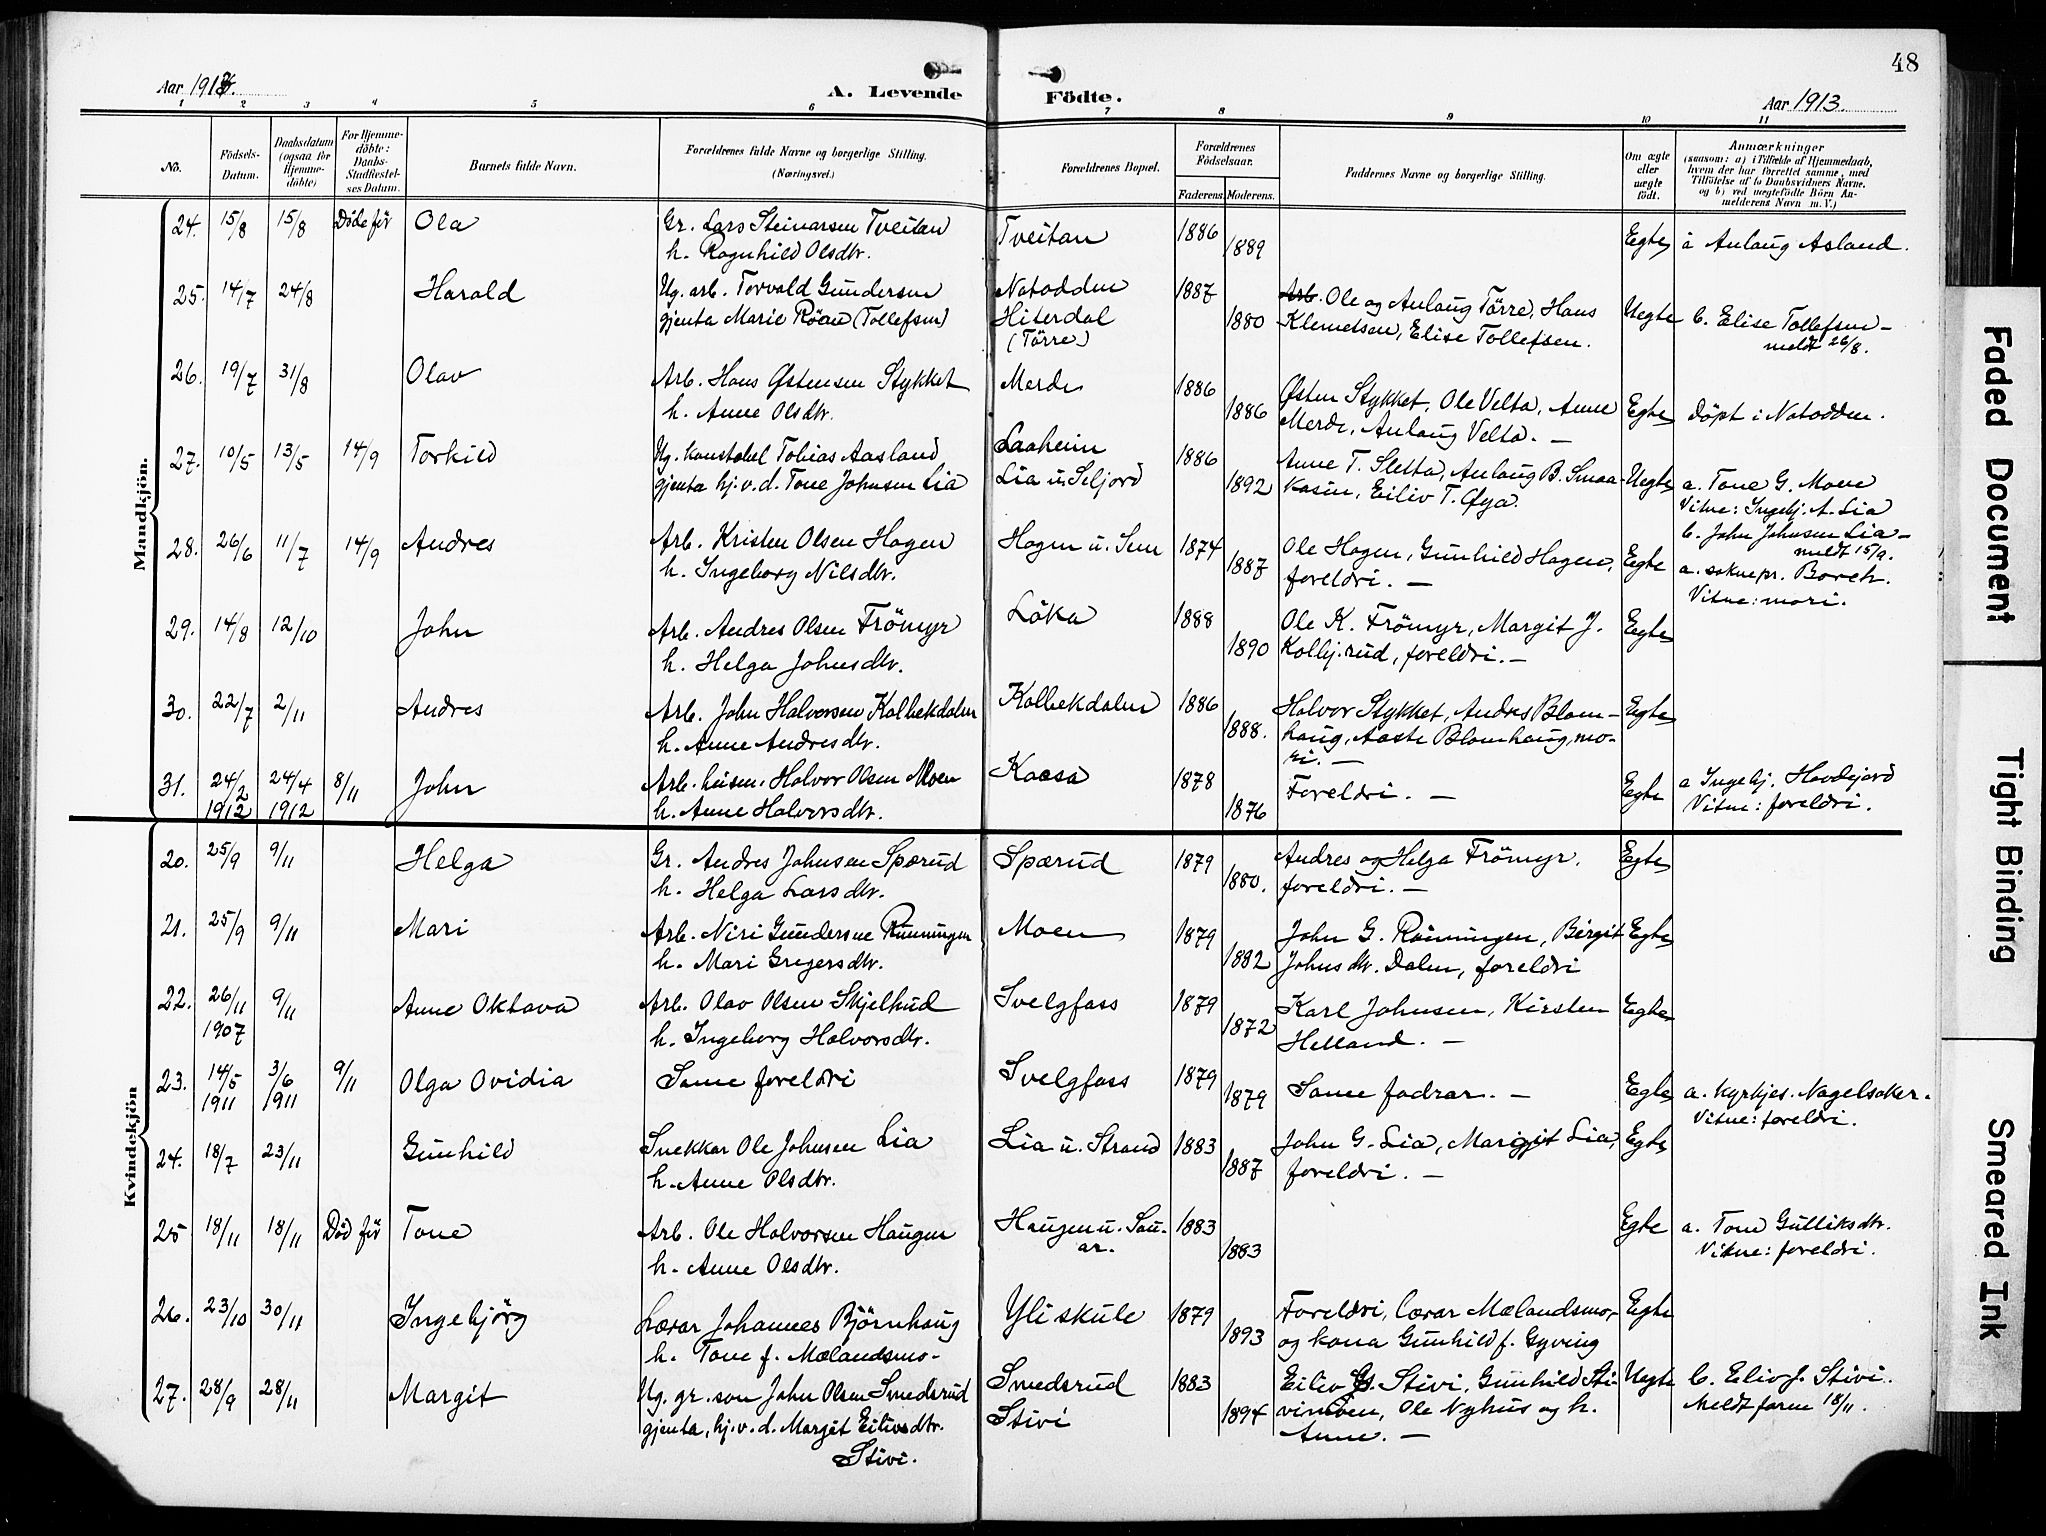 48
Aar 1913.
A. Levende Födte.
Aar 1913.
1 2 3 4 5 6 7 8 9 10 11
No.
Födsels-Datum.
Daabsdatum (ogsaa for Hjemme-döbte)
For Hjemme-döbte: Daabs-Stadfæstel-ses Datum.
Barnets fulde Navn.
Forældrenes fulde Navne og borgerlige Stilling. (Næringsvei.)
Forældrenes Bopæl.
Forældrenes Födselsaar.
Faderens.
Moderens.
Faddernes Navne og borgerlige Stilling.
Om ægte eller uægte födt.
Anmærkninger (saasom: a) i Tilfælde af Hjemmedaab, hvem der har forrettet samme, med Tilföielse af to Daabsvidners Navne, og b) ved uegtefödte Börn An-melderens Navn m. V.)
Mandkjön.
24. 15/8 15/8 Döde för Ola Gr. Lars Steinarsen Tveitan Tveitan 1886 Egte a Aslaug Asland.
h. Ragnhild Olsdtr. 1889
25. 14/7 24/8 Harald Ug. arb. Torvald Gundersen Notodden 1887 Arb. Ole og Aslaug Törre, Hans Uegte b. Elise Tollefsen -
gjenta Marie Röen (Tollefsen) Hiterdal (Törre) 1880 Klemetsen, Elise Tollefsen. meldt 26/8.
26. 19/7 31/8 Olav Arb. Hans Østensen Stykket Merde 1886 Østen Stykket, Ole Velta, Anne Egte Döpt i Notodden.
h. Anne Olsdtr. 1886 Merde, Aslaug Velta. -
27. 10/5 13/5 14/9 Torkild Ug. konstabel Tobias Aasland Laaheim 1886 Anne T. Sletta, Aslaug B. Smaa- Uegte a. Tone G. Moen
gjenta hj. v. d. Tone Johnsen Lia Lia u. Seljord 1892 kasin, Eiliv T. Øya. Vitne: Ingebj. A. Lia
b. John Johnsen Lia - meldt 15/9.
28. 26/6 11/7 14/9 Andres Arb. Kristen Olsen Hagen Hagen u. Sem 1874 Ole Hagen, Gunhild Hagen, Egte a. soknepr. Borch.
h. Ingeborg Nilsdtr. 1887 foreldri. - Vitne: mori.
29. 14/8 12/10 John Arb. Andres Olsen Frömyr Löka 1888 Ole K. Frömyr, Margit J. Egte
h. Helga Johnsdtr. 1890 Kolbj.rud, foreldri. -
30. 22/7 2/11 Andres Arb. John Halvorsen Kolbekdalen Kolbekdalen 1886 Halvor Stykket, Andres Blom- Egte
h. Anne Andresdtr. 1888. haug, Aaste Blomhaug, mo-
ri. -
31. 24/2 1912 24/4 1912 8/11 John Arb. husm. Halvor Olsen Moen Kaasa 1878 Foreldri. - Egte a Ingebj. Hovdejord
h. Anne Halvorsdtr. 1876 Vitne: foreldri.
Kvindekjön
20. 25/9 9/11 Helga Gr. Andres Johnsen Spærud Spærud 1879 Andres og Helga Frömyr, Egte
h. Helga Larsdtr. 1880. foreldri. -
21. 25/9 9/11 Mari Arb. Niri Gundersen Rönningen Moen 1879 John G. Rönningen, Birgit Egte
h. Mari Gregersdtr. 1882 Johnsdtr. Dalen, foreldri
22. 26/11 1907 9/11 Anne Oktava Arb. Olav Olsen Skjelbud Svelgfoss 1879 Karl Johnsen, Kirsten Egte
h. Ingeborg Halvorsdtr. 1872 Helland. -
23. 14/5 1911 3/6 1911 9/11 Olga Ovidia Same foreldri Svelgfoss 1879 1879 Same fadrar. - Egte a. kyrkjes. Nagelsaker.
Vitne: foreldri.
24. 18/7 23/11 Gunhild Snekkar Ole Johnsen Lia Lia u. Strand 1883 John G. Lia, Margit Lia, Egte
h. Anne Olsdtr. 1887 foreldri. -
25 18/11 18/11 Död för Tone Arb. Ole Halvorsen Haugen Haugen u. Sau-ar. 1883 Egte a. Tone Gulliksdtr.
h. Anne Olsdtr. 1883 Vitne: foreldri.
26. 23/10 30/11 Ingebjörg Lærar Johannes Björnhaug Yli skule 1879 Foreldri, lærar Mælandsmo, Egte
h. Tone f. Mælandsmo - 1893 og kona Gunhild f. Gyving
27. 28/9 28/11 Margit Ug. gr. son John Olsen Smedsrud Smedsrud 1883 Eiliv G. Stivi, Gunhild Sti- Uegte b. Eliv J. Stivi.
gjenta, hj. v. d. Margit Eilivsdtr. Stivi 1894 vimoen, Ole Nyhus og h. Meldt farne 18/11.
Stivi. Anne. -
Faded Document
Tight Binding
Smeared Ink